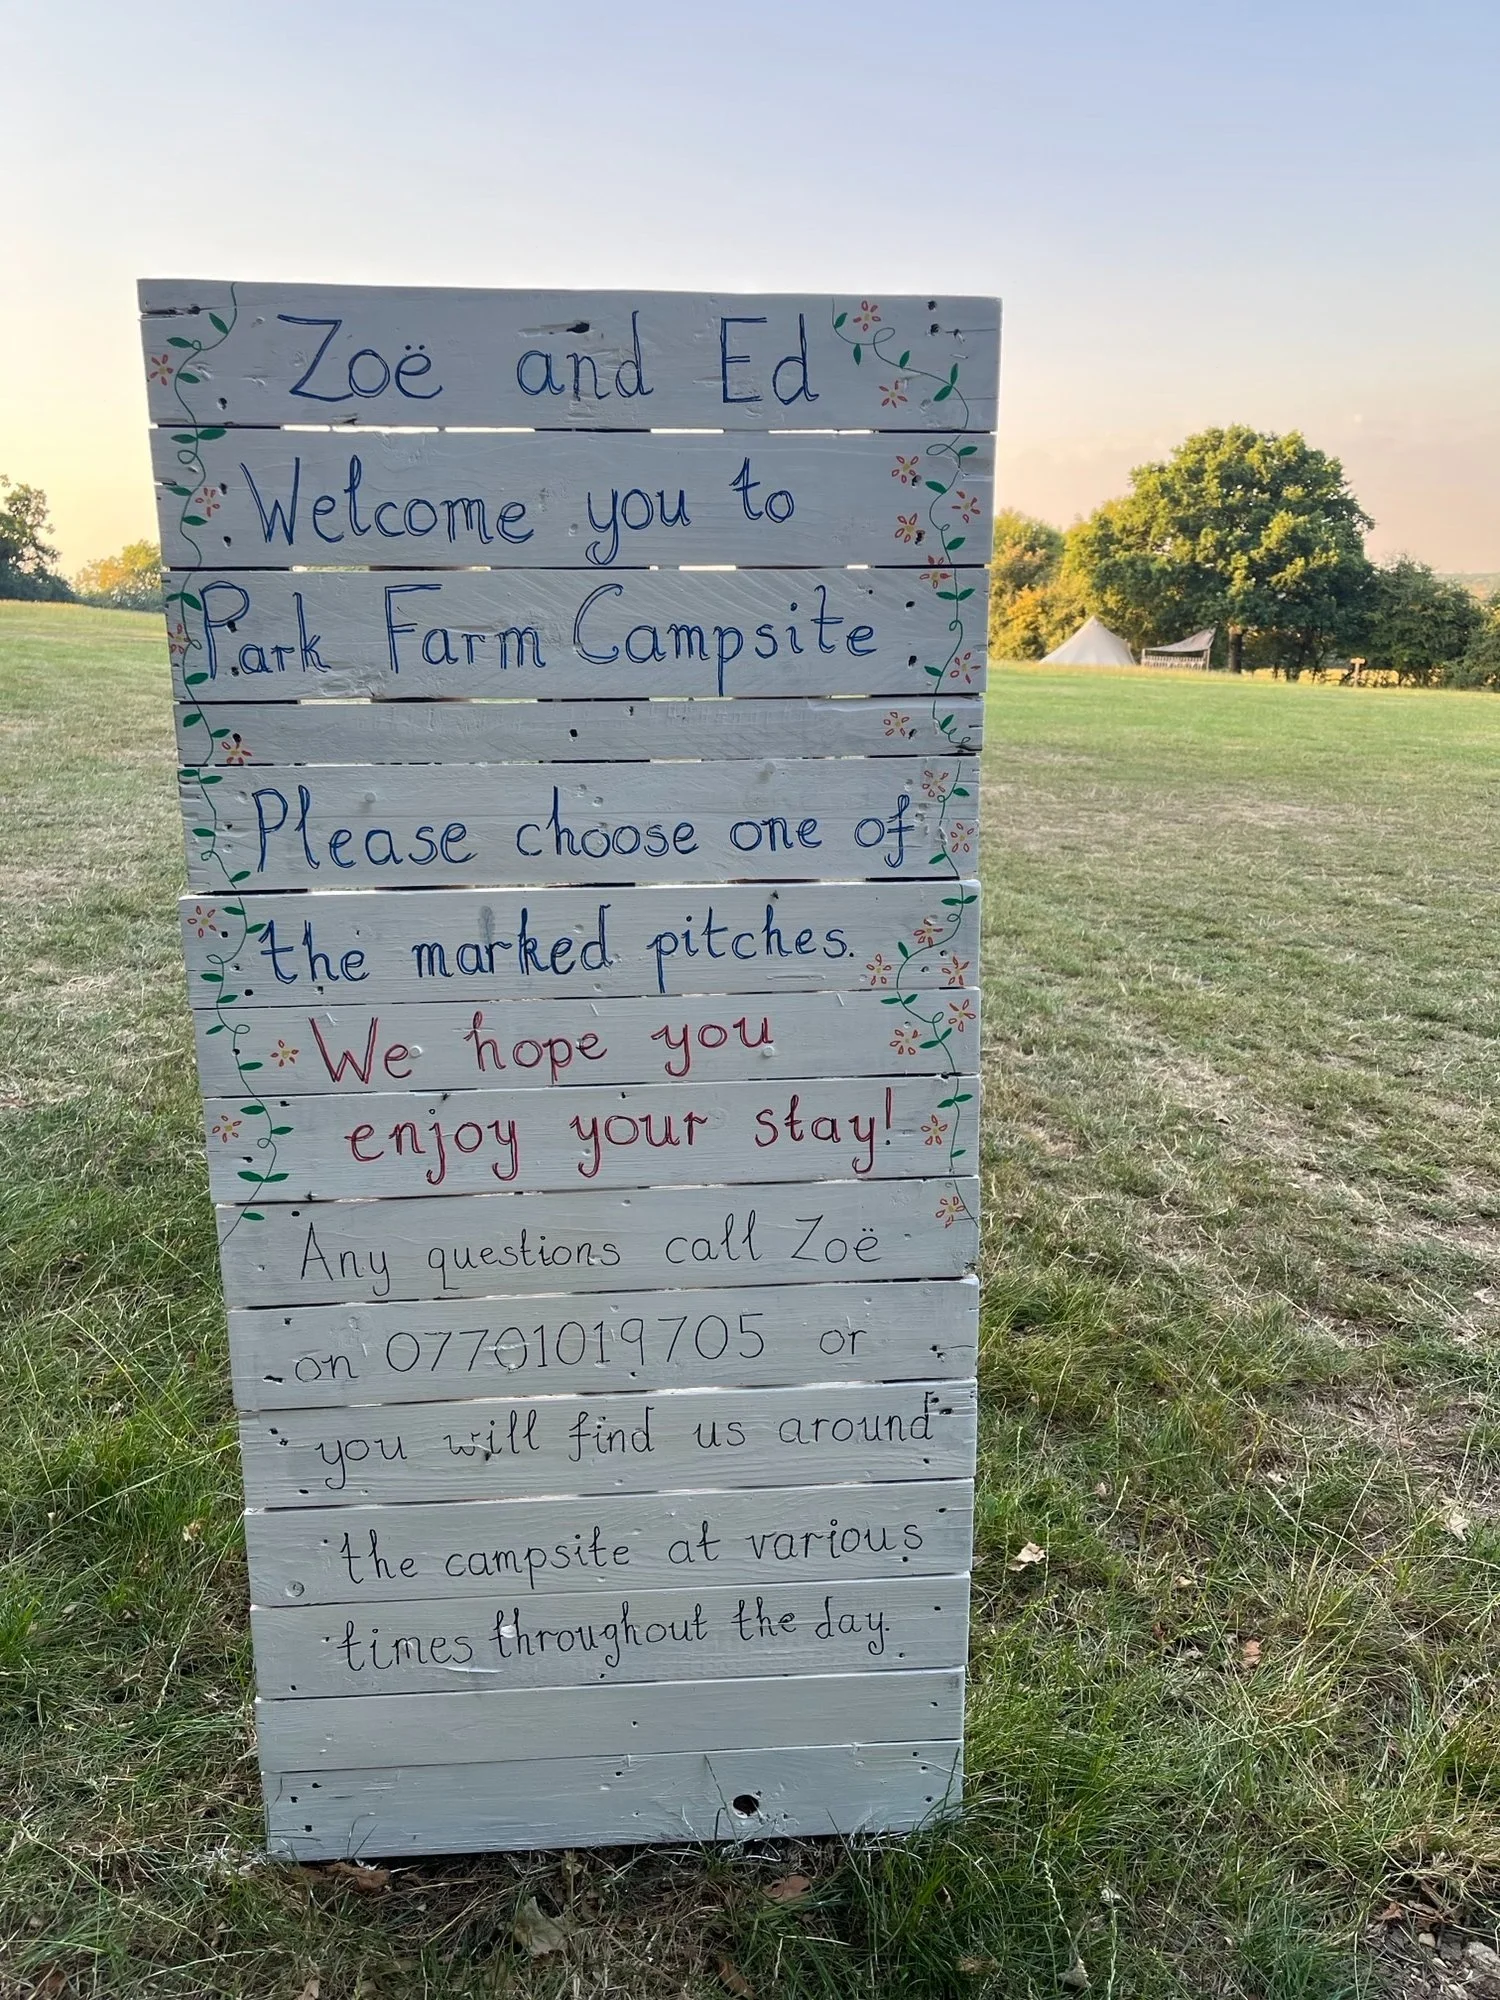 Zoë and Ed
Welcome you to
Park Farm Campsite
Please choose one of
the marked pitches.
We hope you
enjoy your stay!
Any questions call Zoë
on 07701019705 or
you will find us around
the campsite at various
times throughout the day.